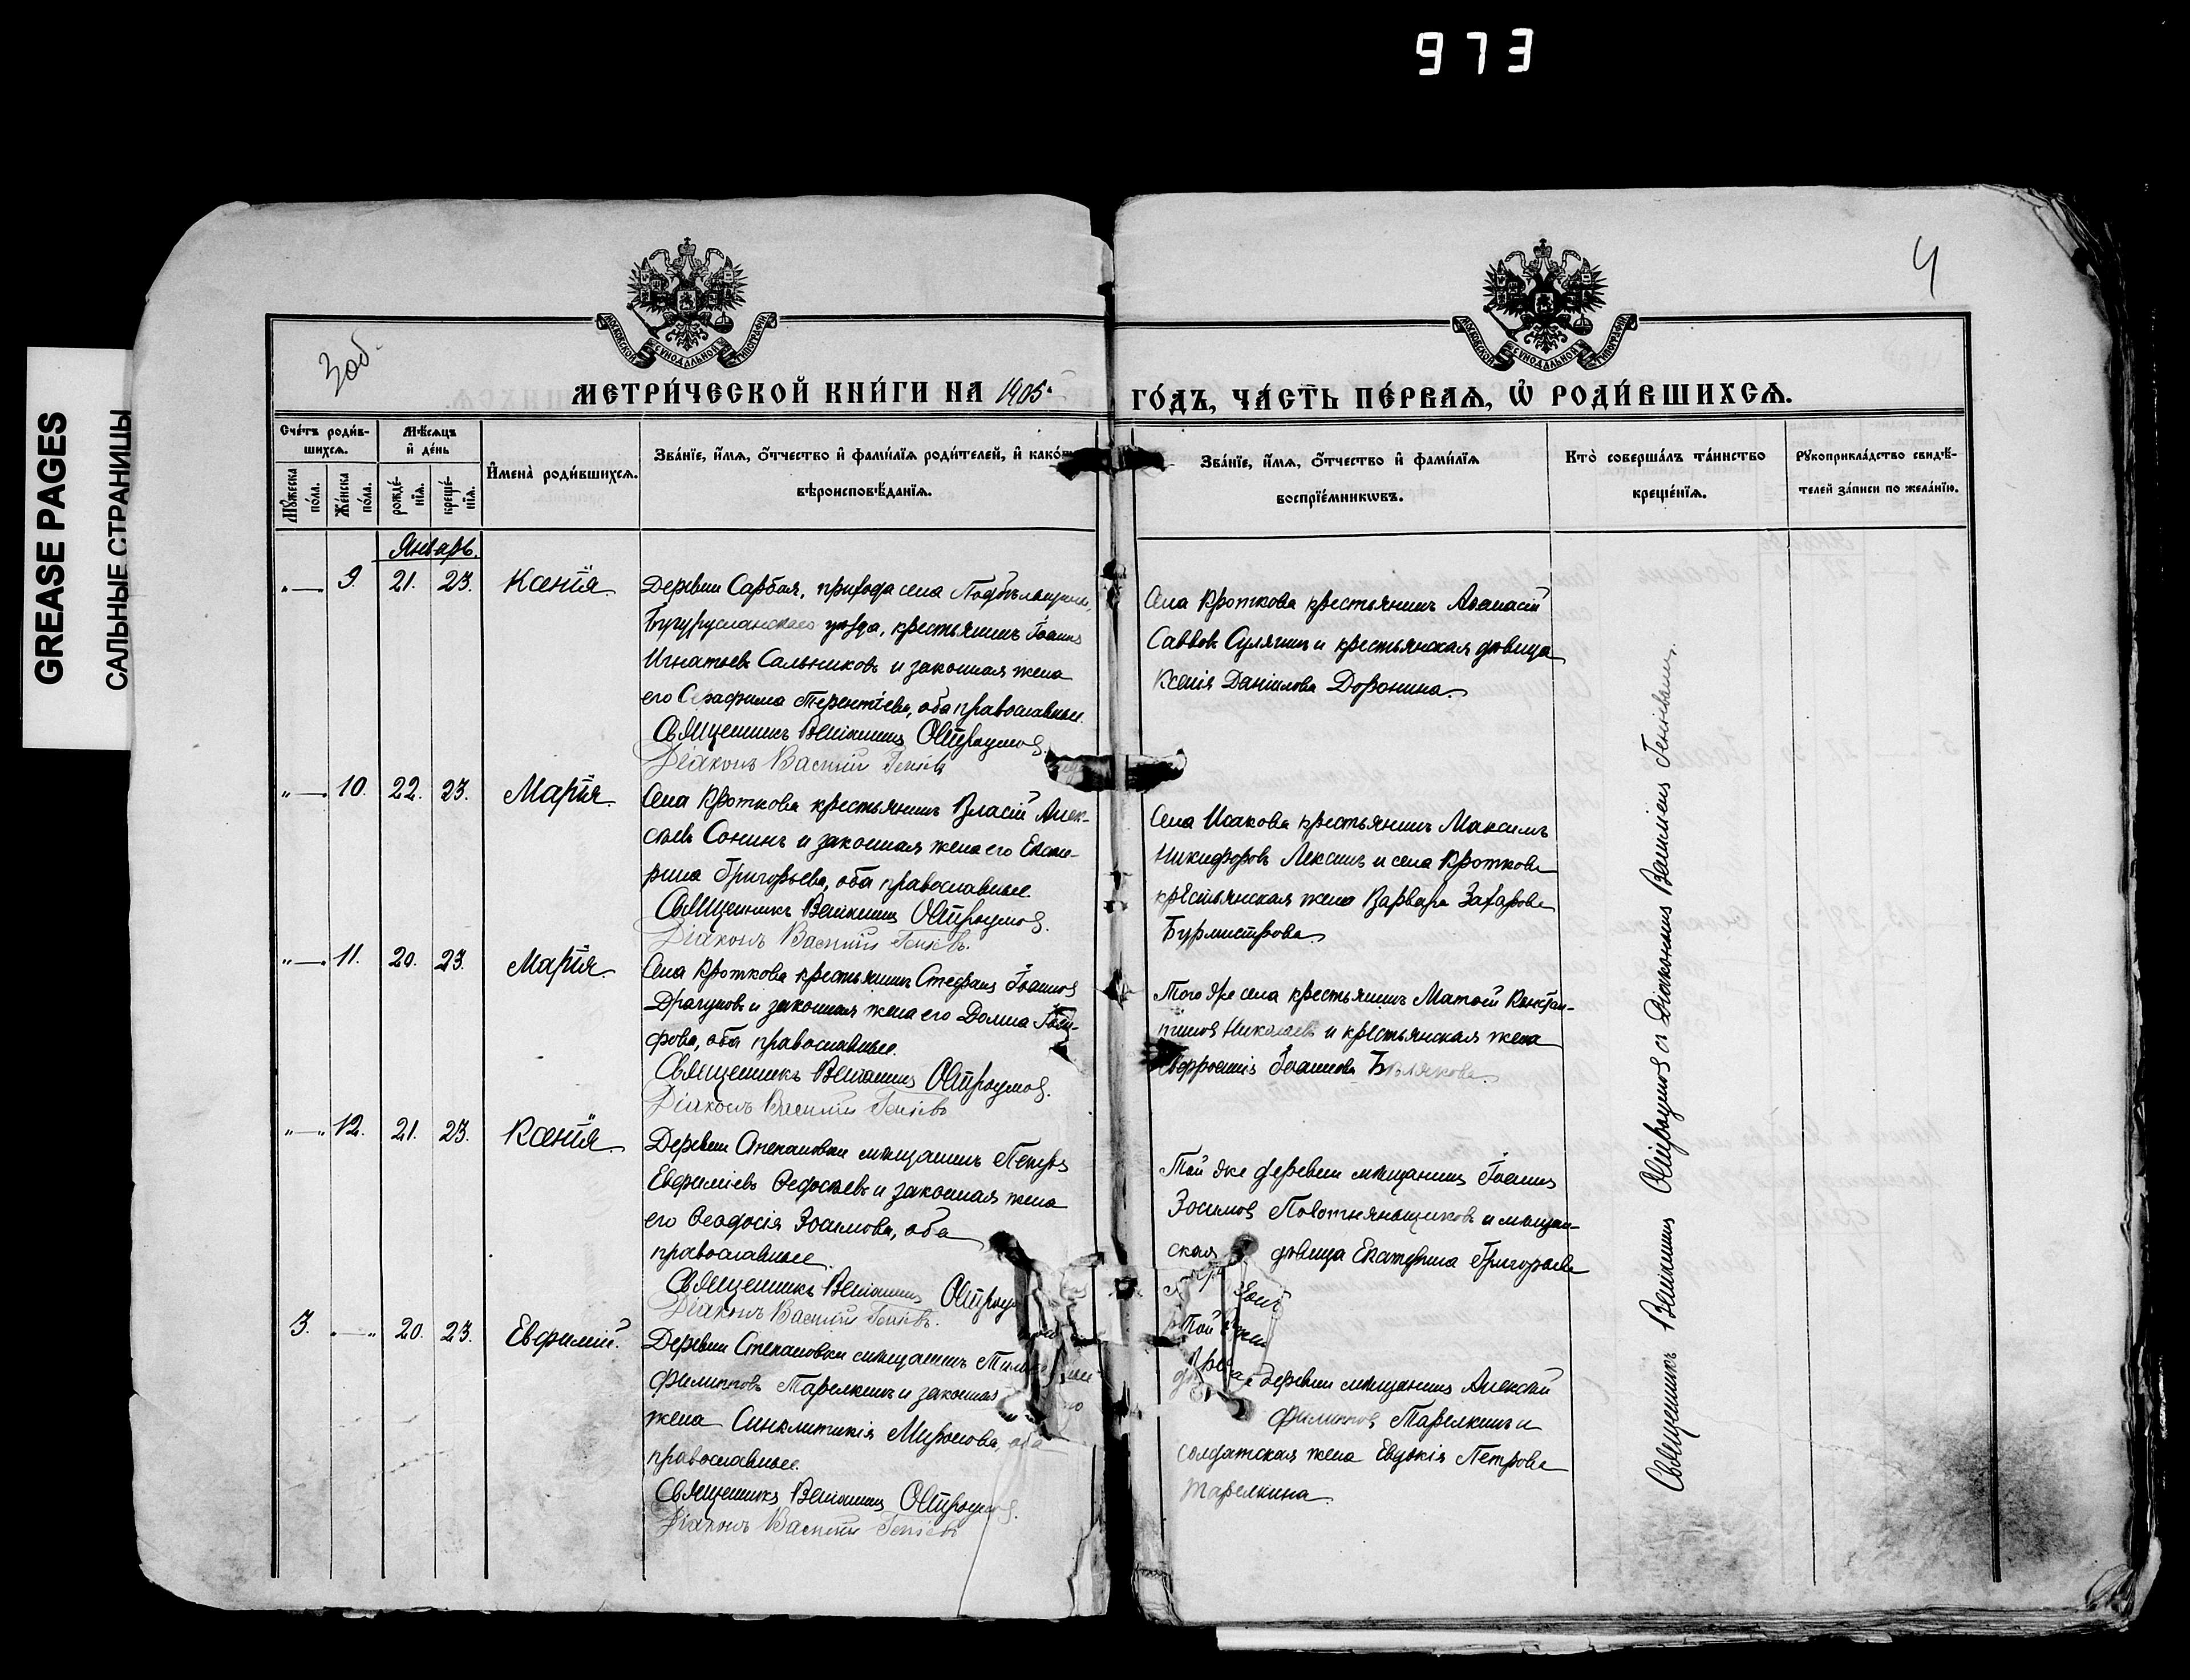 973
GREASE PAGES
САЛЬНЫЕ СТРАНИЦЫ
4
Зоб.
МОСКОВСКОЙ СѴНОДАЛЬНОЙ ТИПОГРАФІИ
МОСКОВСКОЙ СѴНОДАЛЬНОЙ ТИПОГРАФІИ
МЕТРИ́ЧЕСКОЙ КНИ́ГИ НА 1905.
ГО́ДЪ, ЧА́СТЬ ПЕ́РВАѦ, Ѽ РОДИ́ВШИХСѦ.
Сче́тъ роди́в-
шихсѧ.
Мꙋ́жеска по́ла.
Же́нска по́ла.
Мѣ́сѧцъ
и҆ де́нь
рожде́-нїѧ.
креще́-нїѧ.
И҆мена̀ роди́вшихсѧ.
Зва́нїе, и҆́мѧ, ѻ҆́тчество и҆ фами́лїѧ роди́телей, и҆ како́гѡ
вѣроисповѣ́данїѧ.
Зва́нїе, и҆́мѧ, ѻ҆́тчество и҆ фами́лїѧ
воспрїе́мникѡвъ.
Кто̀ соверша́лъ та́инство
креще́нїѧ.
Рꙋкоприкла́дство свидѣ́-
телей за́писи по жела́нїю.
Январь.
"— 9. 21. 23. Ксенія
Деревни Сарбая, прихода села Подбѣльщины,
Бугурусланскаго уѣзда, крестьянинъ Іоаннъ
Игнатьевъ Сальниковъ и законная жена
его Серафима Терентіева, оба православные.
Священникъ Веніаминъ Остроумовъ.
Діаконъ Василій Геніевъ
Села Кроткова крестьянинъ Аѳанасій
Саввовъ Сулягинъ и крестьянская дѣвица
Ксенія Даніилова Доронина.
"— 10. 22. 23. Марія
Села Кроткова крестьянинъ Власій Алек-
сѣевъ Сонинъ и законная жена его Екате-
рина Григорьева, оба православные.
Священникъ Веніаминъ Остроумовъ.
Діаконъ Василій Геніевъ.
Села Исакова крестьянинъ Максимъ
Никифоровъ Лексинъ и села Кроткова
крестьянская жена Варвара Захарова
Бурмистрова.
"— 11. 20. 23. Марія
Села Кроткова крестьянинъ Стефанъ Іоанновъ
Драгуновъ и законная жена его Домна
фова, оба православные.
Священникъ Веніаминъ Остроумовъ.
Діаконъ Василій Геніевъ
Того же села крестьянинъ Матѳей Констан-
тиновъ Николаевъ и крестьянская жена
Евфросинія Іоаннова Бѣлякова.
"—" 12. 21. 23. Ксенія
Деревни Степановки мѣщанинъ Петръ
Евфиміевъ Ѳедосѣевъ и законная жена
его Ѳеодосія Зосимова, оба
православные.
Священникъ Веніаминъ Остроум
Діаконъ Василій Геніевъ.
Той же деревни мѣщанинъ Іоаннъ
Зосимовъ Полотнянщиковъ и мѣщан-
ская дѣвица Екатерина Григорьева
3. "—" 20. 23. Евфимій.
Деревни Степановки мѣщанинъ
Филипповъ Тарелкинъ и законная
жена Синклитикія Миронова, оба
православные.
Священникъ Веніаминъ Остроумовъ.
Діаконъ Василій Геніевъ
Той
деревни мѣщанинъ Алексѣй
Филипповъ Тарелкинъ и
солдатская жена Евдокія Петрова
Тарелкина.
Священникъ Веніаминъ Остроумовъ съ Діакономъ Василіемъ Геніевымъ.